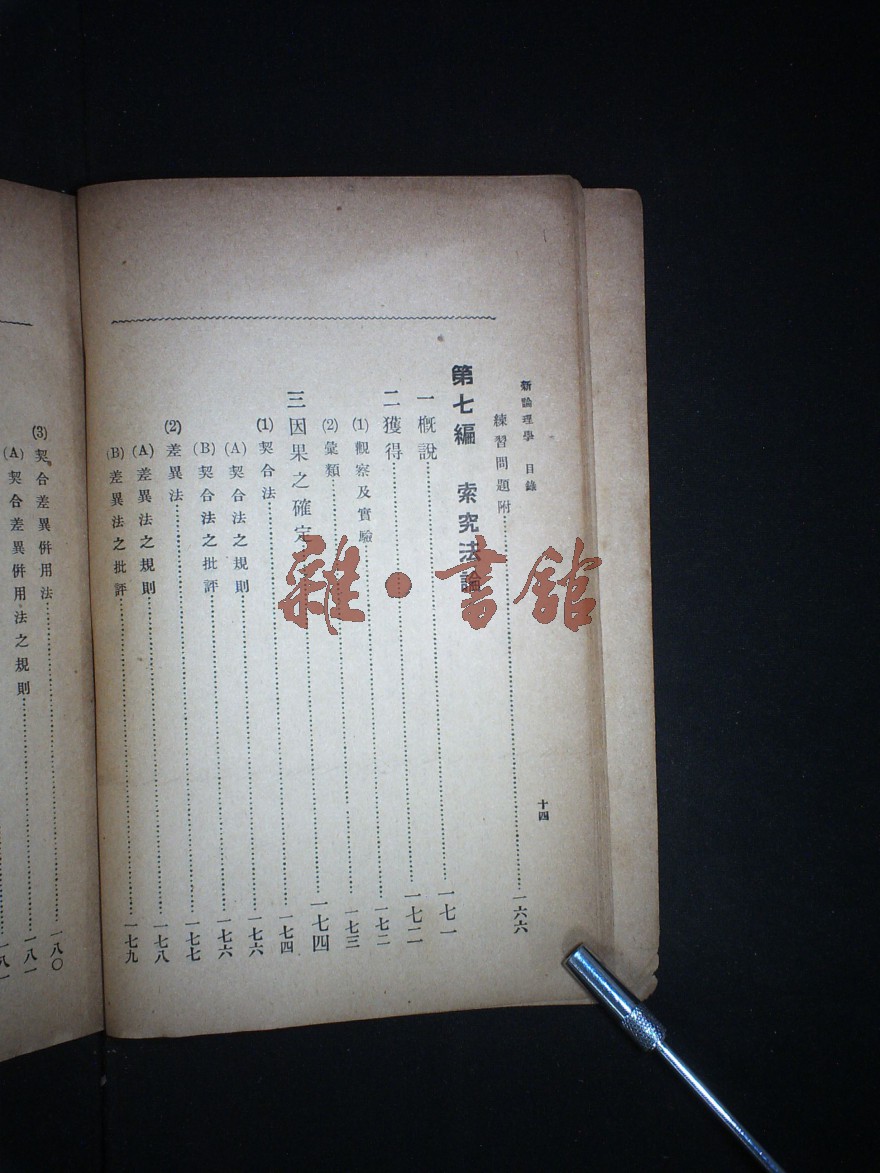 新論理學 目錄 十四
練習問題附……一六六
第七編 索究法論
一概說……一七一
二獲得……一七二
(1)觀察及實驗……一七二
(2)彙類……一七三
三因果之確定……一七四
(1)契合法……一七四
(A)契合法之規則……一七六
(B)契合法之批評……一七六
(2)差異法……一七七
(A)差異法之規則……一七八
(B)差異法之批評……一七九
(3)契合差異併用法……一八〇
(A)契合差異併用法之規則……一八一
雜·書館